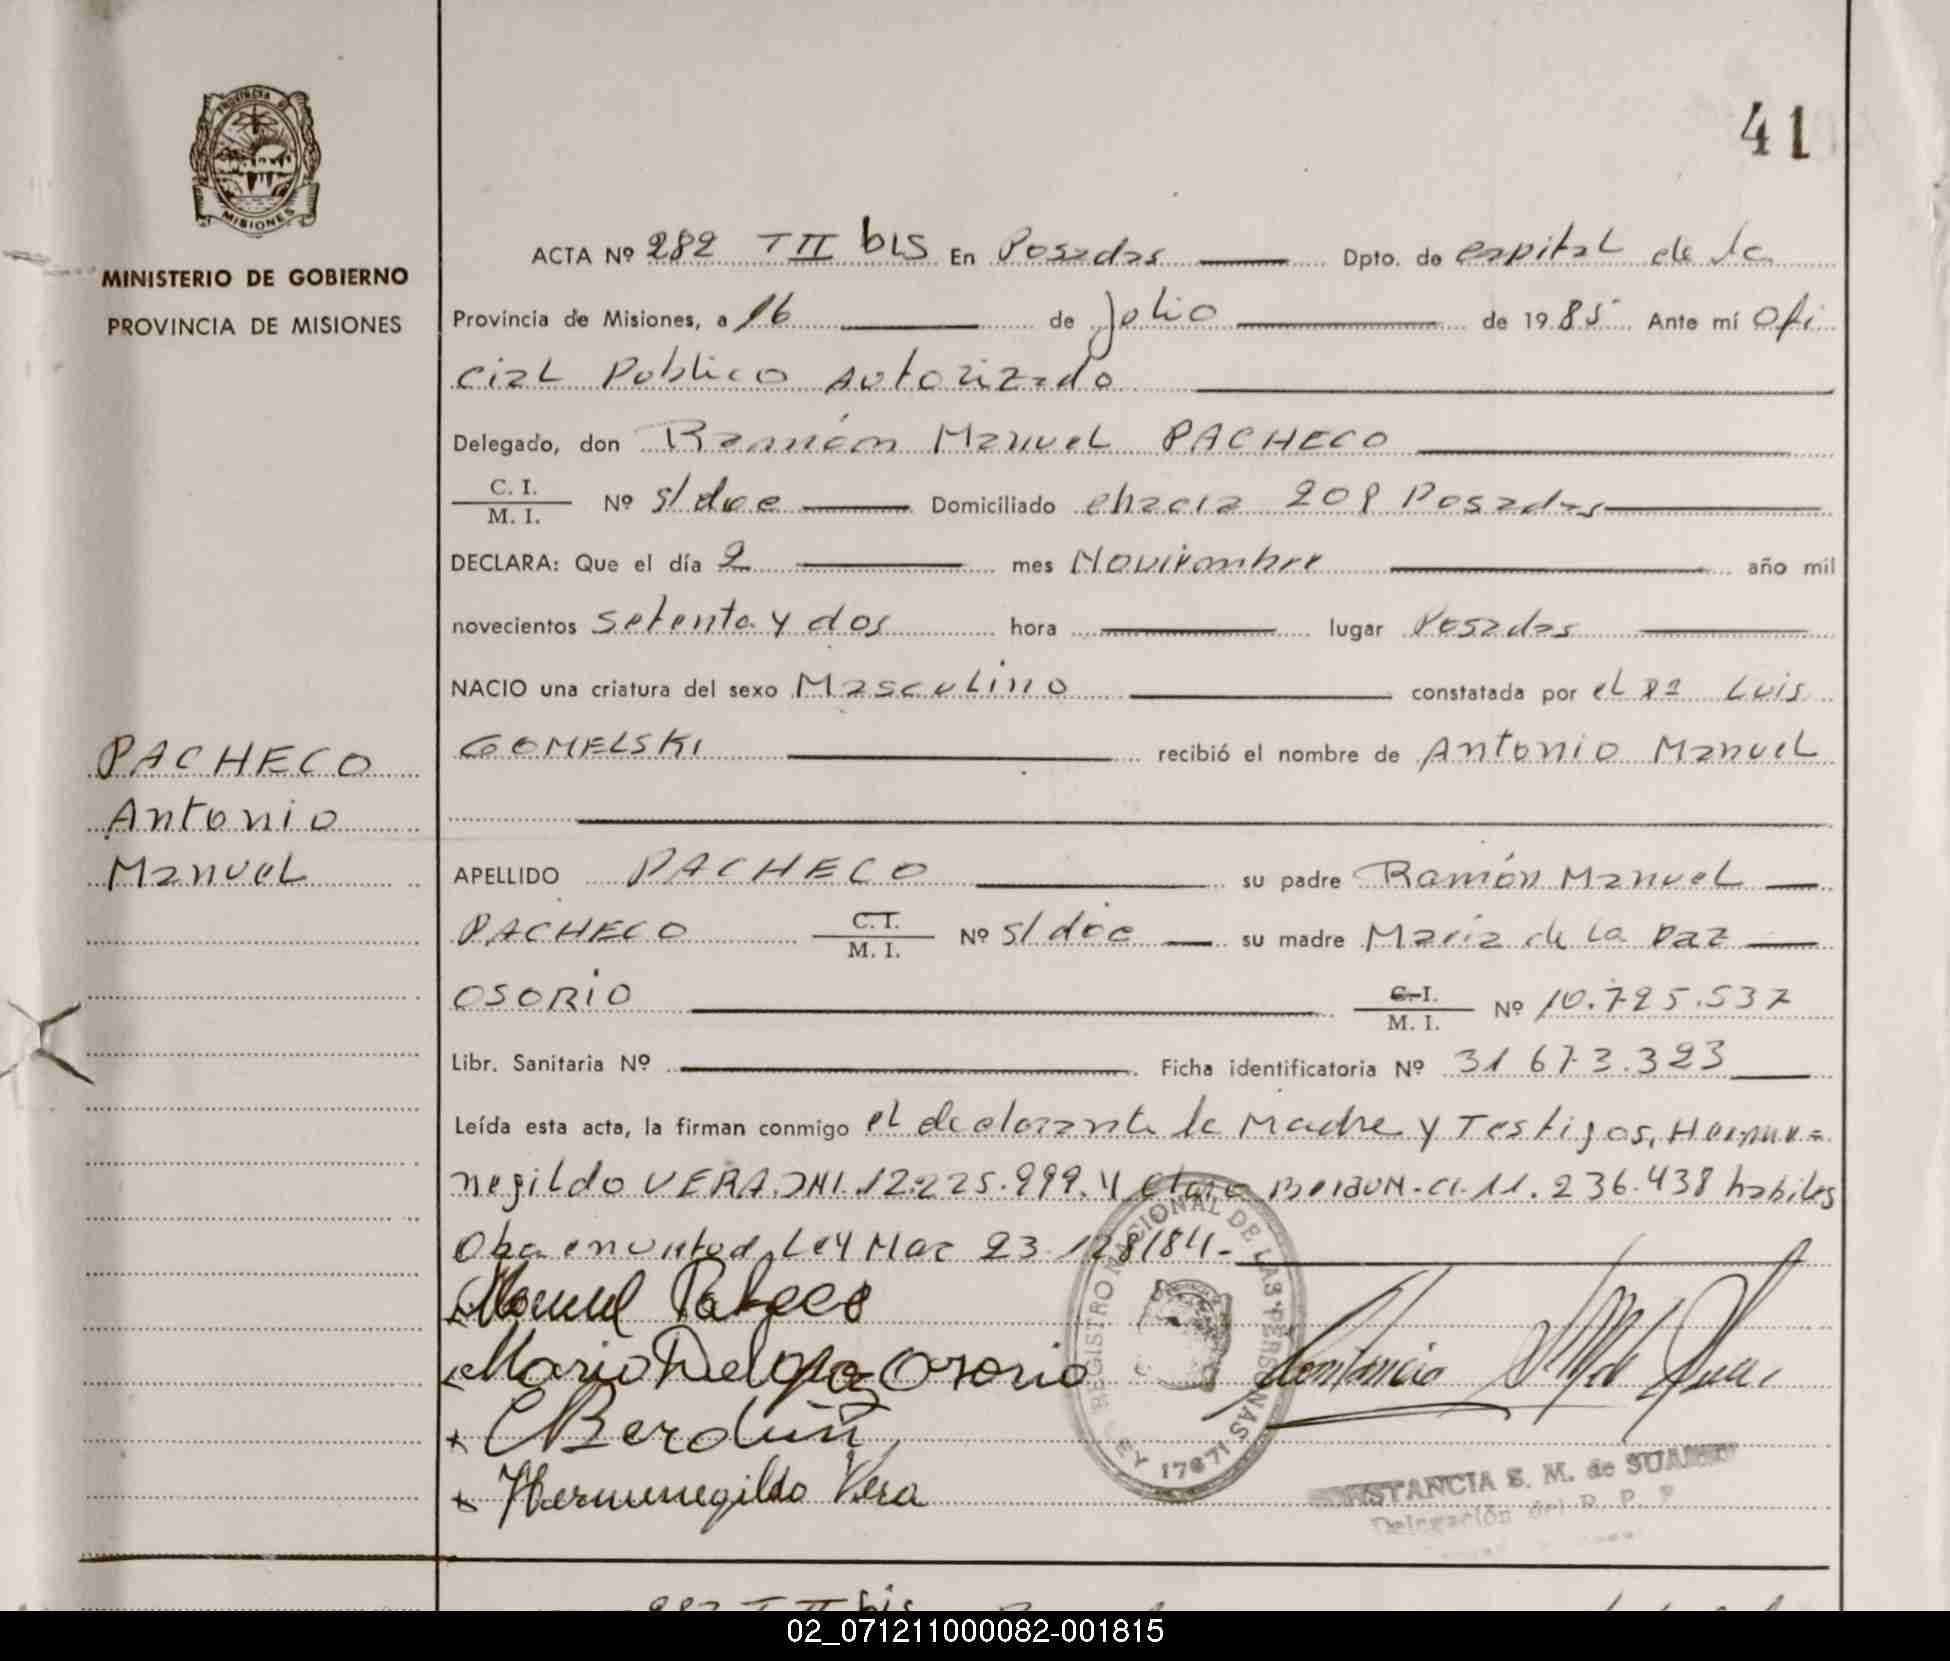 41
PROVINCIA DE
MISIONES
MINISTERIO DE GOBIERNO
PROVINCIA DE MISIONES
ACTA Nº 282 T II bis En Posadas Dpto. de capital de la
Provincia de Misiones, a 16 de Julio de 1985 Ante mí Ofi
cial Publico Autorizado
Delegado, don Ramón Manuel PACHECO
C. I.
M. I. Nº s/doc Domiciliado chacra 209 Posadas
DECLARA: Que el día 2 mes Noviembre año mil
novecientos setenta y dos hora lugar Posadas
NACIO una criatura del sexo Masculino constatada por el Dr Luis
GOMELSKI recibió el nombre de Antonio Manuel
PACHECO
Antonio
Manuel
APELLIDO PACHECO su padre Ramón Manuel
PACHECO C. I.
M. I. Nº s/doc su madre María de la Paz
OSORIO C. I.
M. I. Nº 10.795.537
Libr. Sanitaria Nº Ficha identificatoria Nº 31 673.323
Leída esta acta, la firman conmigo el declarante la Madre y Testigos, Herme=
negildo VERA DNI. 12.225.999. y BERDUN. CI. 11.236.438 habiles
Ley Nac 23.128/84-
Manuel Pacheco
Maria De la pa Osorio
C Berdún
Hermenegildo Vera
REGISTRO NACIONAL DE LAS PERSONAS
LEY 17671
CONSTANCIA S. M. de SUAREZ
Delegación del R. P. P.
282 T II bis
02_071211000082-001815